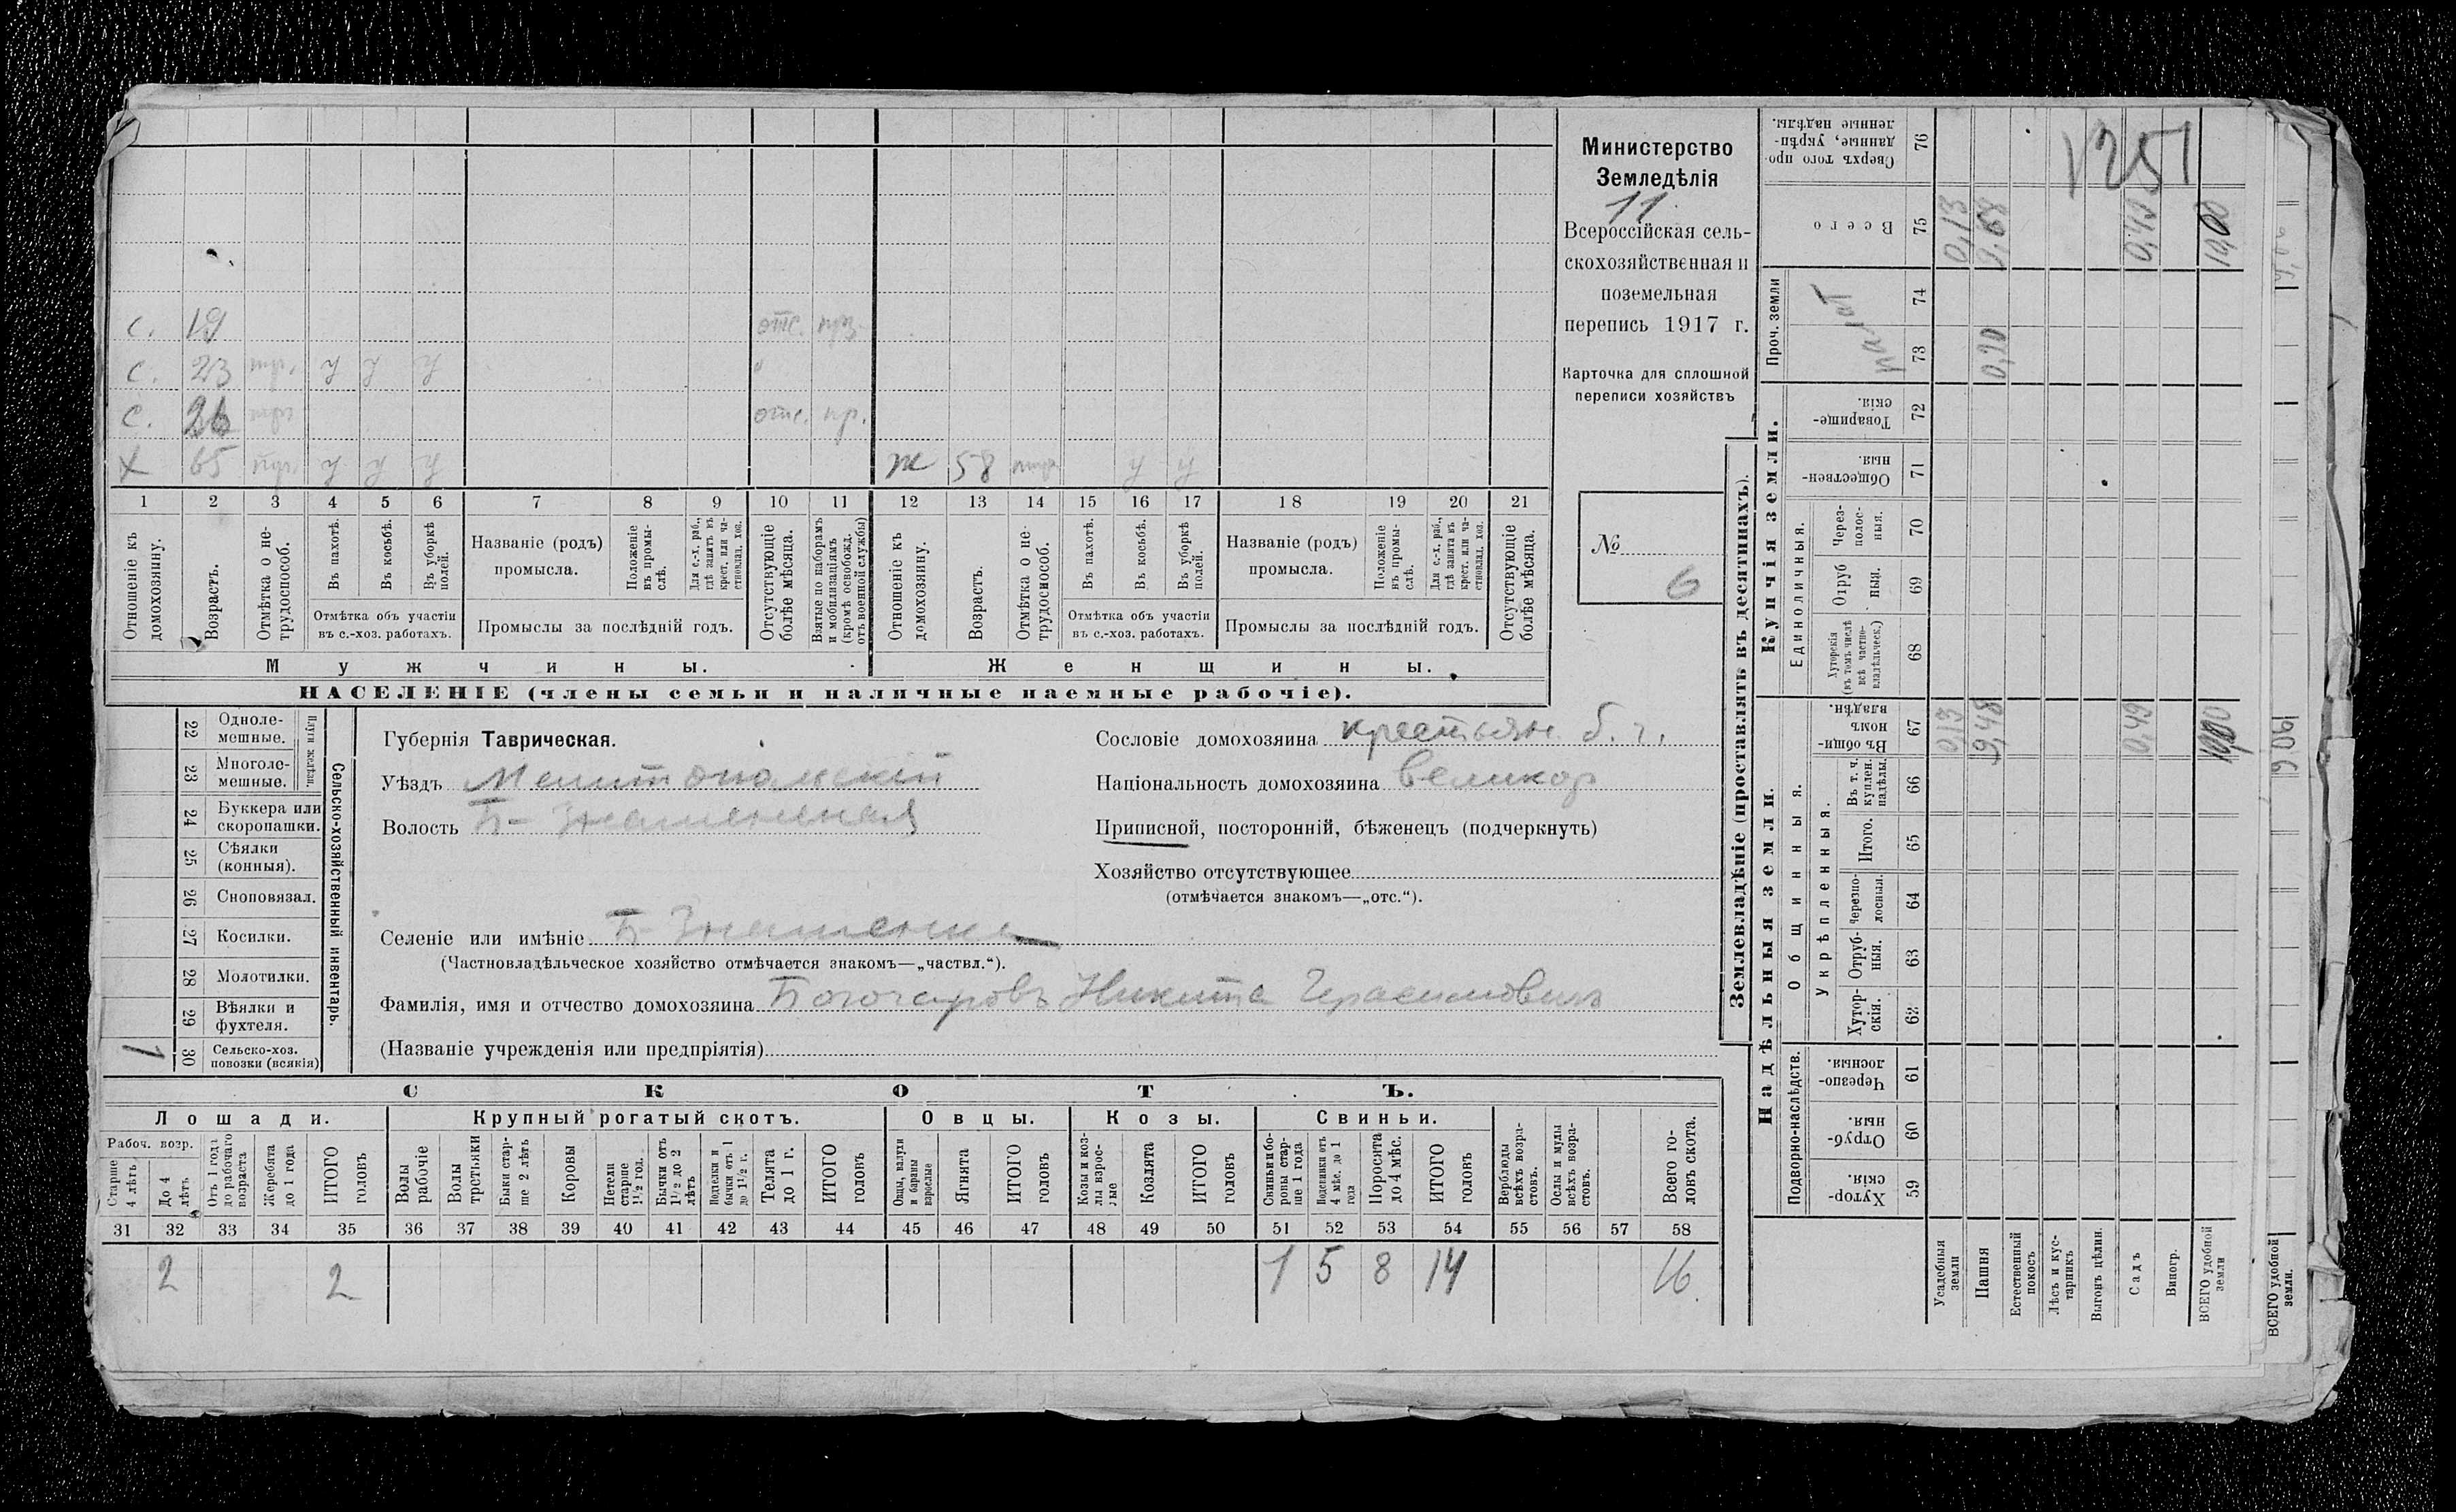 с. 19 отс. пр.
с. 23 тр. у у у "
с. 26 отс. пр.
х 65 у у у ж 58 у у
1 2 3 4 5 6 7 8 9 10 11 12 13 14 15 16 17 18 19 20 21
Отношеніе къ домохозяину.
Возрастъ.
Отмѣтка о нетрудоспособ.
Въ пахотѣ.
Въ косьбѣ.
Въ уборкѣ полей.
Отмѣтка объ участіи
въ с.-хоз. работахъ.
Названіе (родъ)
промысла.
Положеніе въ промыслѣ.
Для с.-х. раб., гдѣ занятъ въ крест. или частновлад. хоз.
Промыслы за послѣдній годъ.
Отсутствующіе болѣе мѣсяца.
Взятые по наборамъ и мобилизаціямъ (кромѣ освобожд. отъ военной службы)
Отношеніе къ домохозяину.
Возрастъ.
Отмѣтка о нетрудоспособ.
Въ пахотѣ.
Въ косьбѣ.
Въ уборкѣ полей.
Отмѣтка объ участіи
въ с.-хоз. работахъ.
Названіе (родъ)
промысла.
Положеніе въ промыслѣ.
Для с.-х. раб., гдѣ занята въ крест. или частновлад. хоз.
Промыслы за послѣдній годъ.
Отсутствующіе болѣе мѣсяца.
Мужчины. Женщины.
НАСЕЛЕНІЕ (члены семьи и наличные наемные рабочіе).
Министерство
Земледѣлія
11
Всероссійская сель-
скохозяйственная и
поземельная
перепись 1917 г.
Карточка для сплошной
переписи хозяйствъ
№
6
22 Одноле-
мешные.
23 Многоле-
мешные.
Плуги желѣзн.
24 Буккера или
скоропашки.
25 Сѣялки
(конныя).
26 Сноповязал.
27 Косилки.
28 Молотилки.
29 Вѣялки и
фухтеля.
1 30 Сельско-хоз.
повозки (всякія)
Сельско-хозяйственный инвентарь.
Губернія Таврическая.
Уѣздъ Мелитопольскій
Волость Б-Знаменская
Селеніе или имѣніе Б-Знаменка
(Частновладѣльческое хозяйство отмѣчается знакомъ—„частвл.“).
Фамилія, имя и отчество домохозяина Богочаровъ Никита Герасимовичъ
(Названіе учрежденія или предпріятія)
Сословіе домохозяина крестьян. б. г.
Національность домохозяина великор
Приписной, посторонній, бѣженецъ (подчеркнуть)
Хозяйство отсутствующее
(отмѣчается знакомъ—„отс.“).
СКОТЪ.
Лошади. Крупный рогатый скотъ. Овцы. Козы. Свиньи.
Рабоч. возр.
Старше 4 лѣтъ
До 4 лѣтъ
Отъ 1 года до рабочаго возраста
Жеребята до 1 года
ИТОГО головъ
Волы рабочіе
Волы третьяки
Быки старше 2 лѣтъ
Коровы
Нетели старше 1½ год.
Бычки отъ 1½ до 2 лѣтъ
Нетели и бычки отъ 1 до 1½ г.
Телята до 1 г.
ИТОГО головъ
Овцы, валухи и бараны взрослые
Ягнята
ИТОГО головъ
Козы и козлы взрослые
Козлята
ИТОГО головъ
Свиньи и боровы старше 1 года
Подсвинки отъ 4 мѣс. до 1 года
Поросята до 4 мѣс.
ИТОГО головъ
Верблюды всѣхъ возрастовъ.
Ослы и мулы всѣхъ возрастовъ.
Всего головъ скота.
31 32 33 34 35 36 37 38 39 40 41 42 43 44 45 46 47 48 49 50 51 52 53 54 55 56 57 58
2 2 1 5 8 14 16
Землевладѣніе (проставлять въ десятинахъ).
1251
Сверхъ того проданные, укрѣпленные надѣлы. 76
Всего 75 0,13 0,49 10,00
Проч. земли
74
73 0,20
Купчія земли.
Товарищескія. 72
Общественныя. 71
Единоличныя.
Черезполосныя. 70
Отрубныя. 69
Хуторскія (въ томъ числѣ всѣ частновладѣльческ.) 68
Надѣльныя земли.
Общинныя.
Въ общинномъ владѣн. 67 0,13 9,48 0,49
Укрѣпленныя.
Въ т. ч. куплен. надѣлы. 66
Итого. 65
Черезполосныя. 64
Отрубныя. 63
Хуторскія. 62
Подворно-наслѣдств.
Черезполосныя. 61
Отрубныя. 60
Хуторскія. 59
Усадебныя земли
Пашня
Естественный покосъ
Лѣсъ и кустарникъ
Выгонъ цѣлин.
Садъ
Виногр.
ВСЕГО удобной земли
ВСЕГО удобной земли.